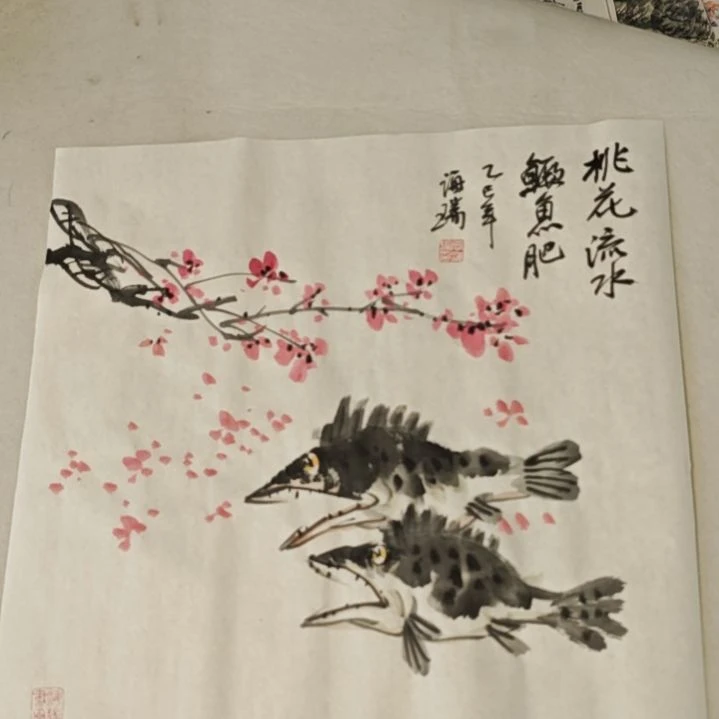 桃花流水
鳜鱼肥
乙巳年
海瑞